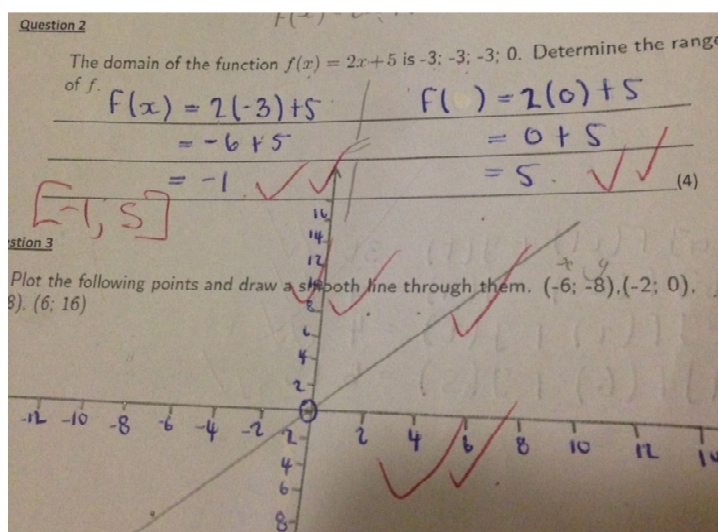 Question 2
The domain of the function f(x) = 2x+5 is -3; -3; -3; 0. Determine the range
of f.
F(x) = 2(-3)+5
= -6+5
= -1
F( ) = 2(0)+5
= 0+5
= 5.
(4)
[-1, 5]
stion 3
Plot the following points and draw a smooth line through them. (-6; -8),(-2; 0),
8). (6; 16)
x y
16
14
12
8
6
4
2
-12 -10 -8 -6 -4 -2 2 4 6 8 10 12 14
2
4
6
8